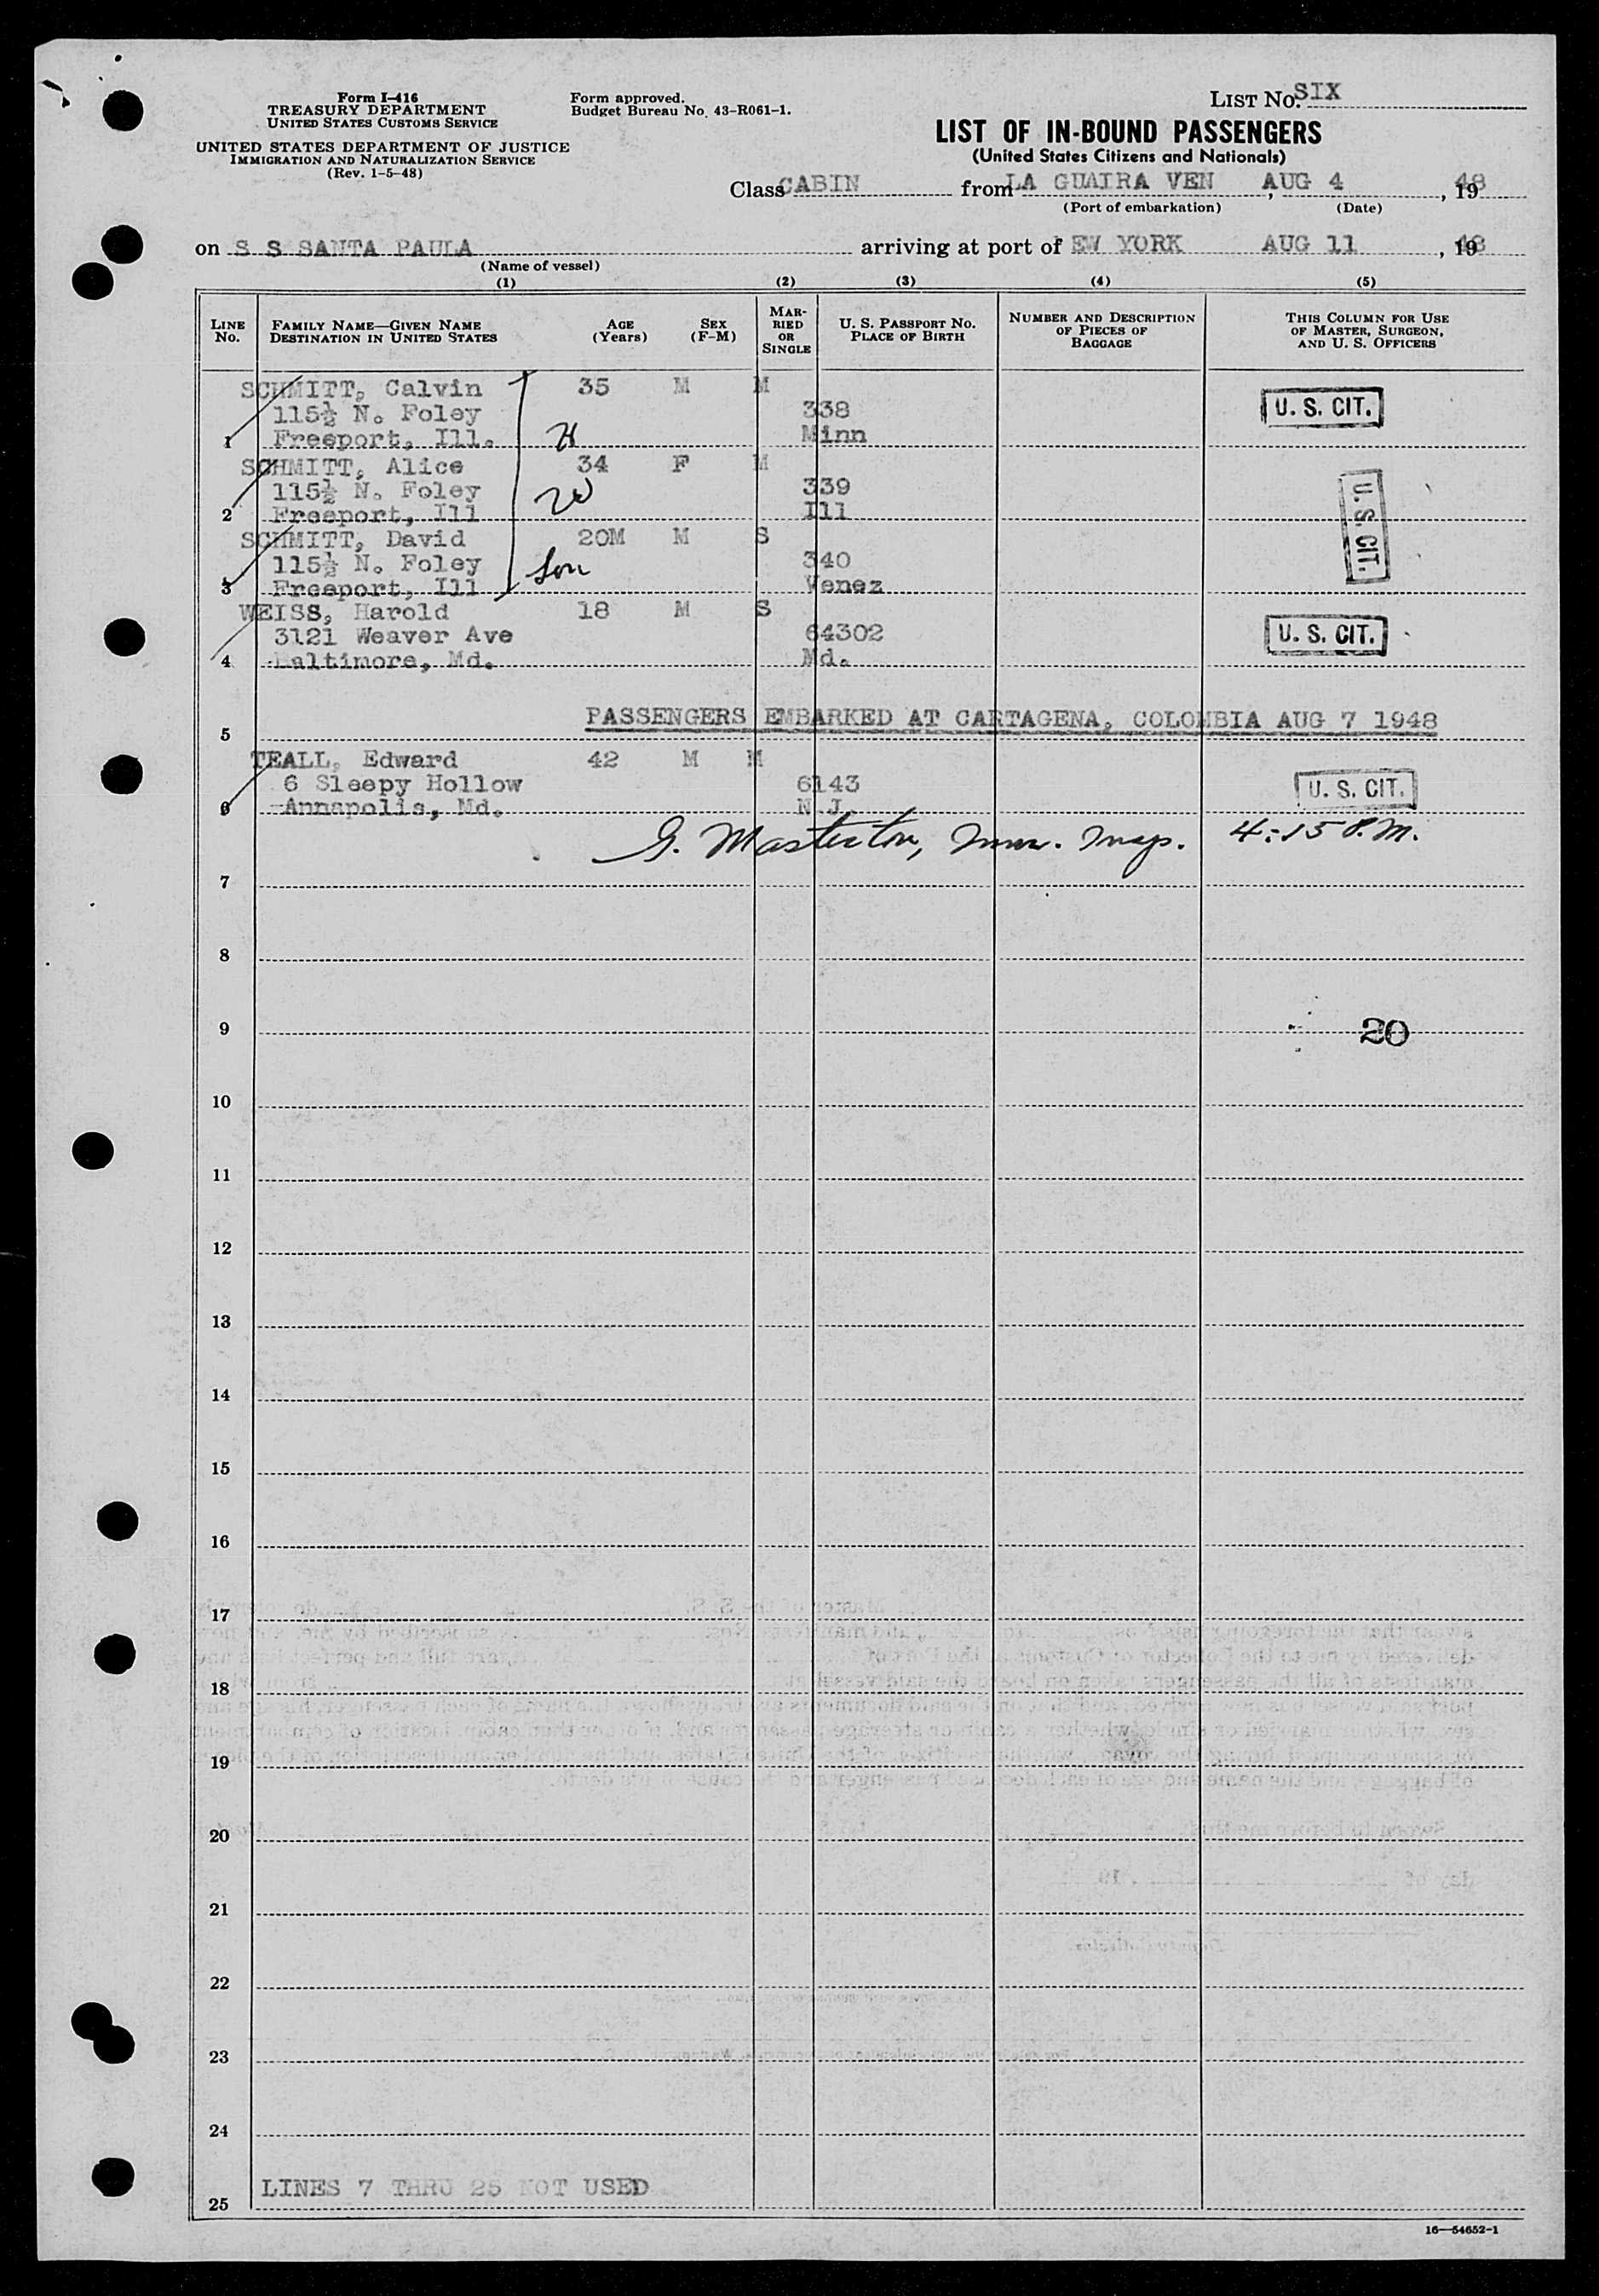 Form I-416
TREASURY DEPARTMENT
UNITED STATES CUSTOMS SERVICE
UNITED STATES DEPARTMENT OF JUSTICE
IMMIGRATION AND NATURALIZATION SERVICE
(Rev. 1-5-48)
Form approved.
Budget Bureau No. 43-R061-1.
LIST No. SIX
LIST OF IN-BOUND PASSENGERS
(United States Citizens and Nationals)
Class CABIN from LA GUAIRA VEN, AUG 4, 1948
(Port of embarkation) (Date)
on S S SANTA PAULA arriving at port of EW YORK AUG 11, 1948
(Name of vessel)
(1) (2) (3) (4) (5)
LINE No.
FAMILY NAME—GIVEN NAME
DESTINATION IN UNITED STATES
AGE (Years)
SEX (F-M)
MARRIED OR SINGLE
U. S. PASSPORT NO.
PLACE OF BIRTH
NUMBER AND DESCRIPTION OF PIECES OF BAGGAGE
THIS COLUMN FOR USE OF MASTER, SURGEON, AND U. S. OFFICERS
SCHMITT, Calvin 35 M M
115½ N. Foley 338 U. S. CIT.
1 Freeport, Ill. H Minn
SCHMITT, Alice 34 F M
115½ N. Foley 339 U. S. CIT.
2 Freeport, Ill W Ill
SCHMITT, David 20M M S
115½ N. Foley 340
3 Freeport, Ill Son Venez
WEISS, Harold 18 M S
3121 Weaver Ave 64302 U. S. CIT.
4 Baltimore, Md. Md.
PASSENGERS EMBARKED AT CARTAGENA, COLOMBIA AUG 7 1948
5
TEALL, Edward 42 M M
6 Sleepy Hollow 6143 U. S. CIT.
6 Annapolis, Md. N J
G. Masterton, Imm. Insp. 4:15 P.M.
7
8
9 20
10
11
12
13
14
15
16
17
18
19
20
21
22
23
24
LINES 7 THRU 25 NOT USED
25
16—54652-1